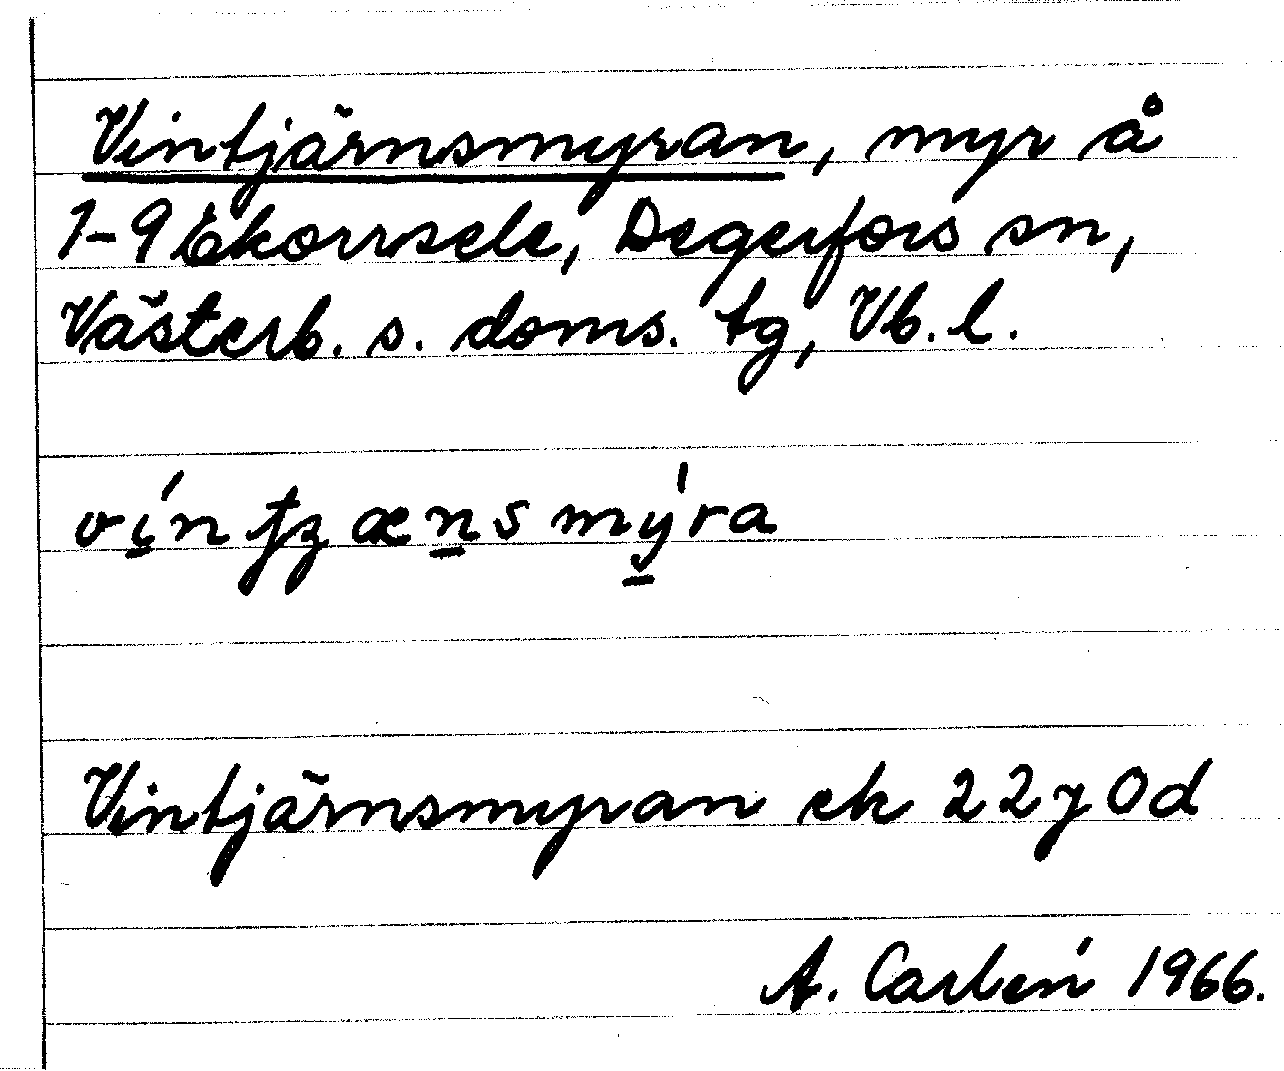 Vintjärnsmyran, myr å
1-9 Ekorrsele, Degerfors sn,
Västerb. s. doms. tg, Vb. l.
Vintjärnsmyran ek 22J0d
A. Carlén 1966.